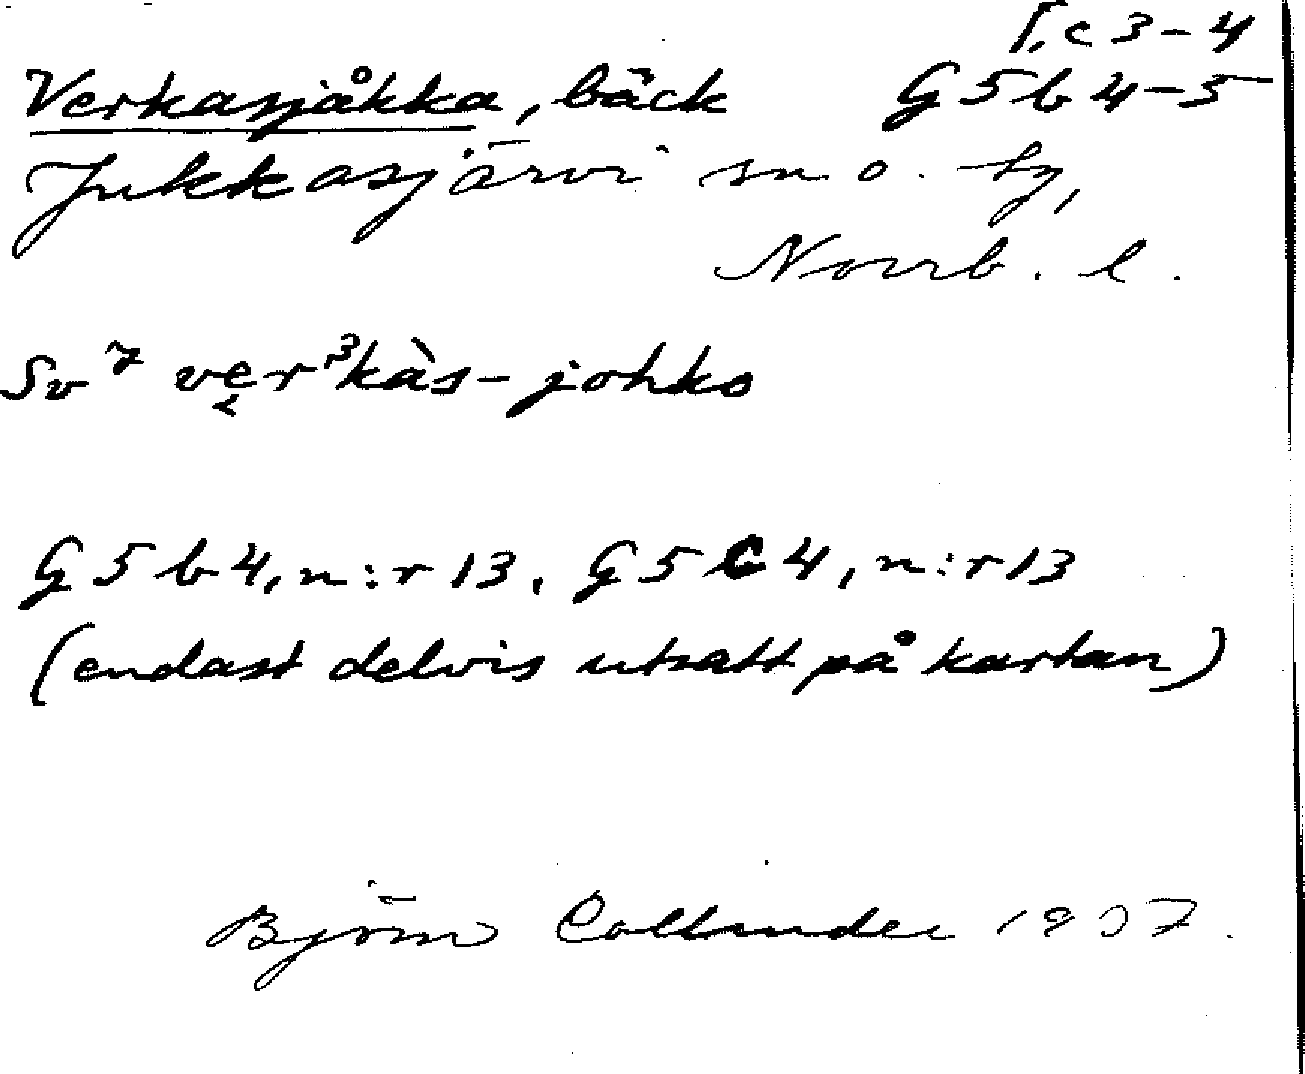 I.c 3-4
Verkasjåkka, bäck G5b4-5
Jukkasjärvi sn o. tg,
Norrb. l.
Sv 7 ver³kàs-johko
G5b4, n:r 13. G5C4, n:r 13
(endast delvis utsatt på kartan)
Björn Collinder 1937.